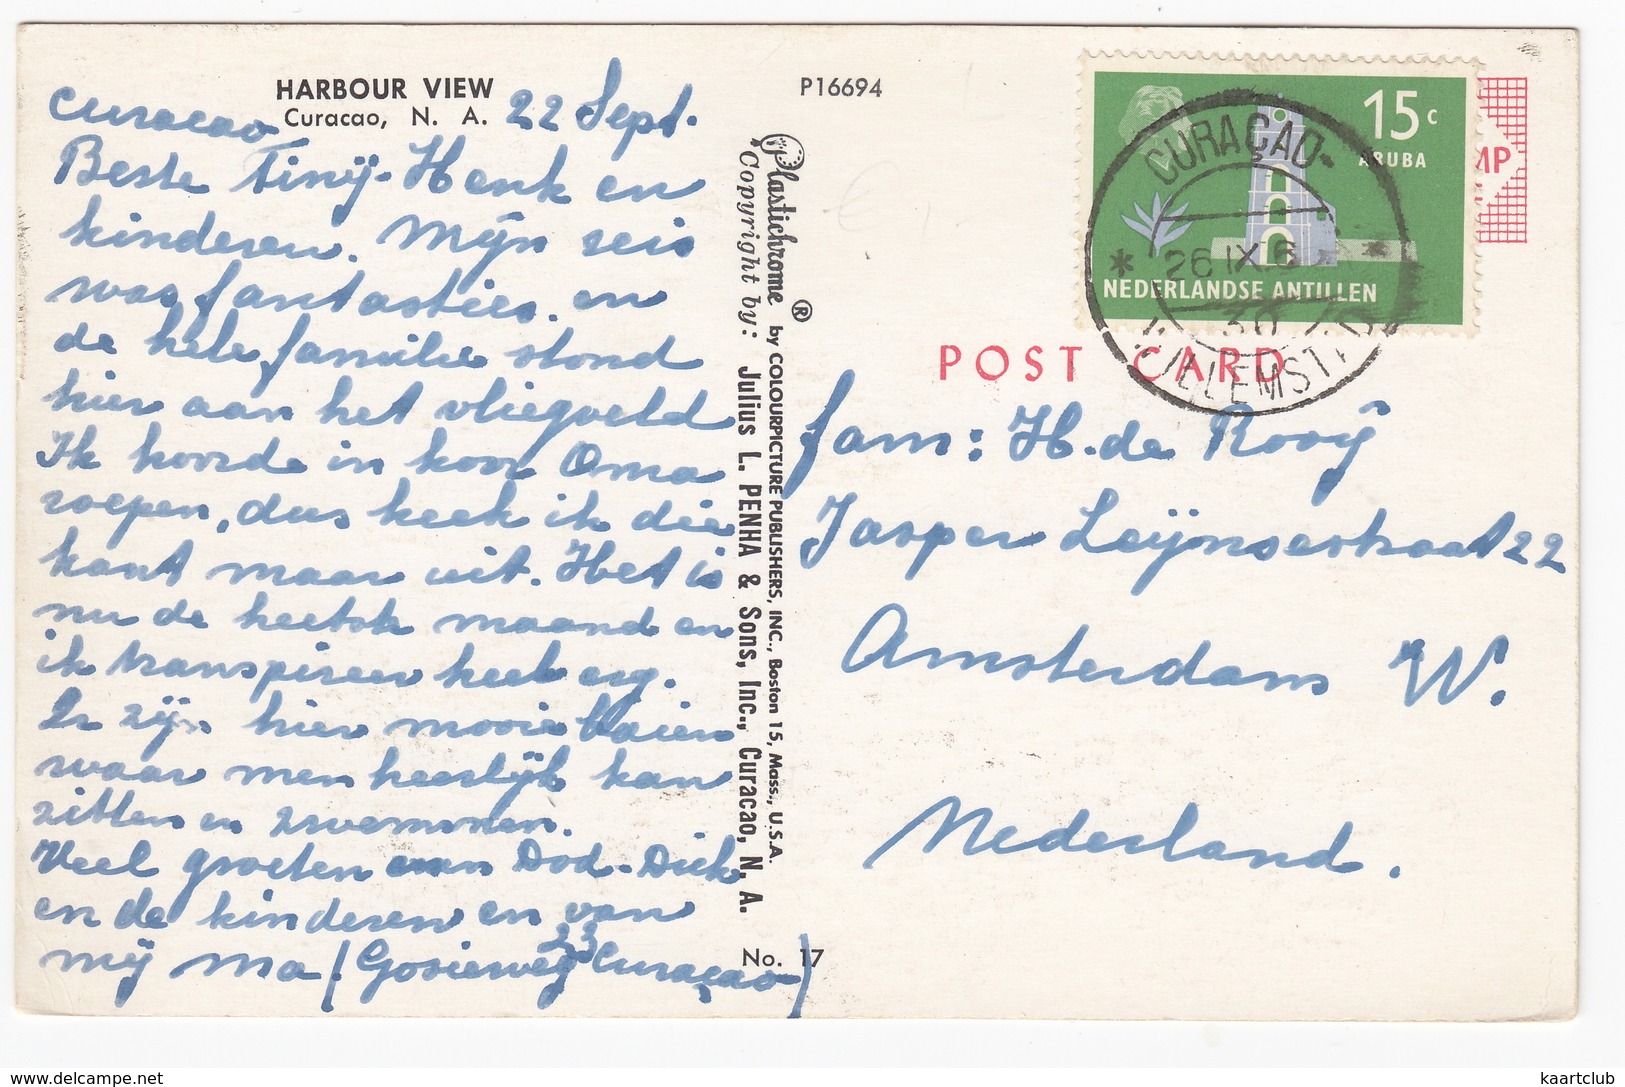 HARBOUR VIEW
Curacao, N. A.
P16694
Curacao 22 Sept.
Beste Tinÿ-Henk en
kinderen. Mÿn reis
was fantasties. en
de hele familie stond
hier aan het vliegveld
Ik hoorde in koor Oma
roepen, dus keek ik die
kant maar uit. Het is
nu de heetste maand en
ik transpireer heel erg.
Er zÿn hier mooie baien
waar men heerlÿk kan
zitten en zwemmen.
Veel groeten van Dod-Dick
en de kinderen en van
mÿ Ma (Gosieweg 23 Curaçao)
Plastichrome ® by COLOURPICTURE PUBLISHERS, INC., Boston 15, Mass., U.S.A.
Copyright by: Julius L. PENHA & Sons, Inc., Curacao, N. A.
No. 17
15 c
ARUBA
NEDERLANDSE ANTILLEN
CURAÇAO-
* 26 IX 6
30
WILLEMSTAD
MP
POST CARD
fam: H. de Rooÿ
Jasper Leÿnsestraat 22
Amsterdam W.
Nederland.
https://www.delcampe.net
kaartclub